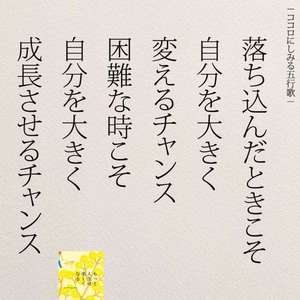 ―ココロにしみる五行歌―
落ち込んだときこそ
自分を大きく
変えるチャンス
困難な時こそ
自分を大きく
成長させるチャンス